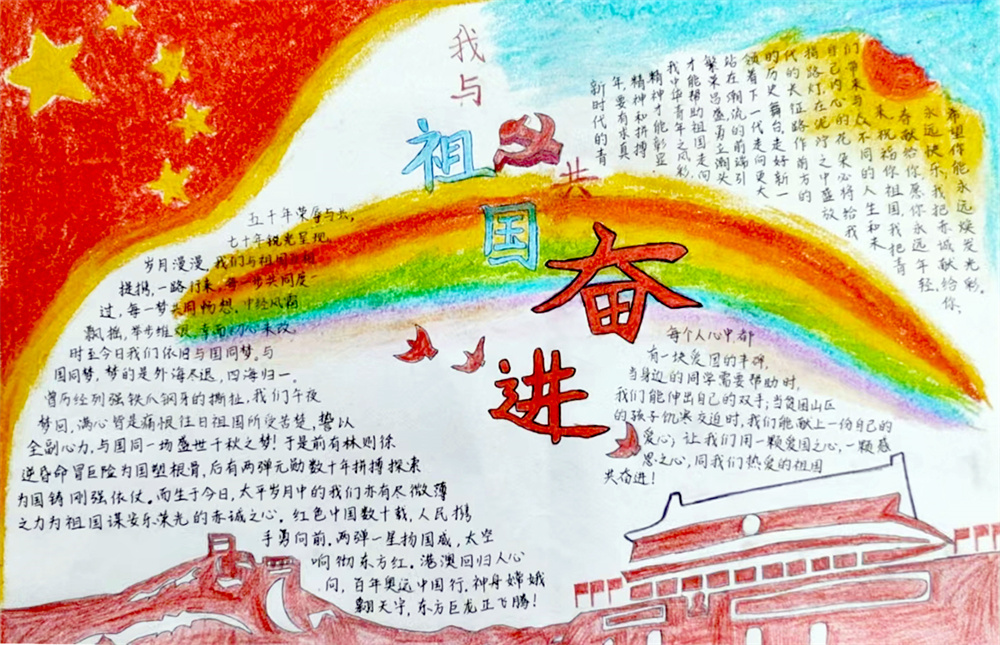 我与
祖国
共
奋进
五十年荣辱与共,
七十年锐光呈现.
岁月漫漫,我们与祖国互相
提携,一路行来,每一步共同度
过,每一梦共同畅想.中经风雨
飘摇,举步维艰,幸而初心未改.
时至今日我们依旧与国同梦.与
国同梦,梦的是外海尽退,四海归一。
曾历经列强铁爪钢牙的撕扯,我们午夜
梦回,满心皆是痛恨往日祖国所受苦楚,势以
全副心力,与国同一场盛世千秋之梦!于是前有林则徐
逆昏命冒巨险为国塑根骨,后有两弹元勋数十年拼搏探索
为国铸刚强依仗.而生于今日,太平岁月中的我们亦有尽微薄
之力为祖国谋安乐荣光的赤诚之心.红色中国数十载,人民携
手勇向前.两弹一星扬国威,太空
响彻东方红.港澳回归人心
问,百年奥运中国行.神舟嫦娥
翱天宇,东方巨龙正飞腾!
新时代的青
年,要有求真
精神和拼搏
精神才能彰显
我中华青年之风彩,
才能帮助祖国走向
繁荣昌盛,勇立潮头
站在潮流的前端引
领着下一代走向更大
的历史舞台,走好新一
代的长征路,作前方的
指路灯,在泥泞之中盛放
自己内心的花朵必将给我
们带来与众不同的人生和未
来,祝福你祖国,我把青
春献给你,愿你永远年轻,
永远快乐,我把赤诚献给你,
希望你能永远焕发光彩.
每个人心中都
有一块爱国的丰碑,
当身边的同学需要帮助时,
我们能伸出自己的双手;当贫困山区
的孩子饥寒交迫时,我们能献上一份自己的
爱心;让我们用一颗爱国之心,一颗感
恩之心,同我们热爱的祖国
共奋进!